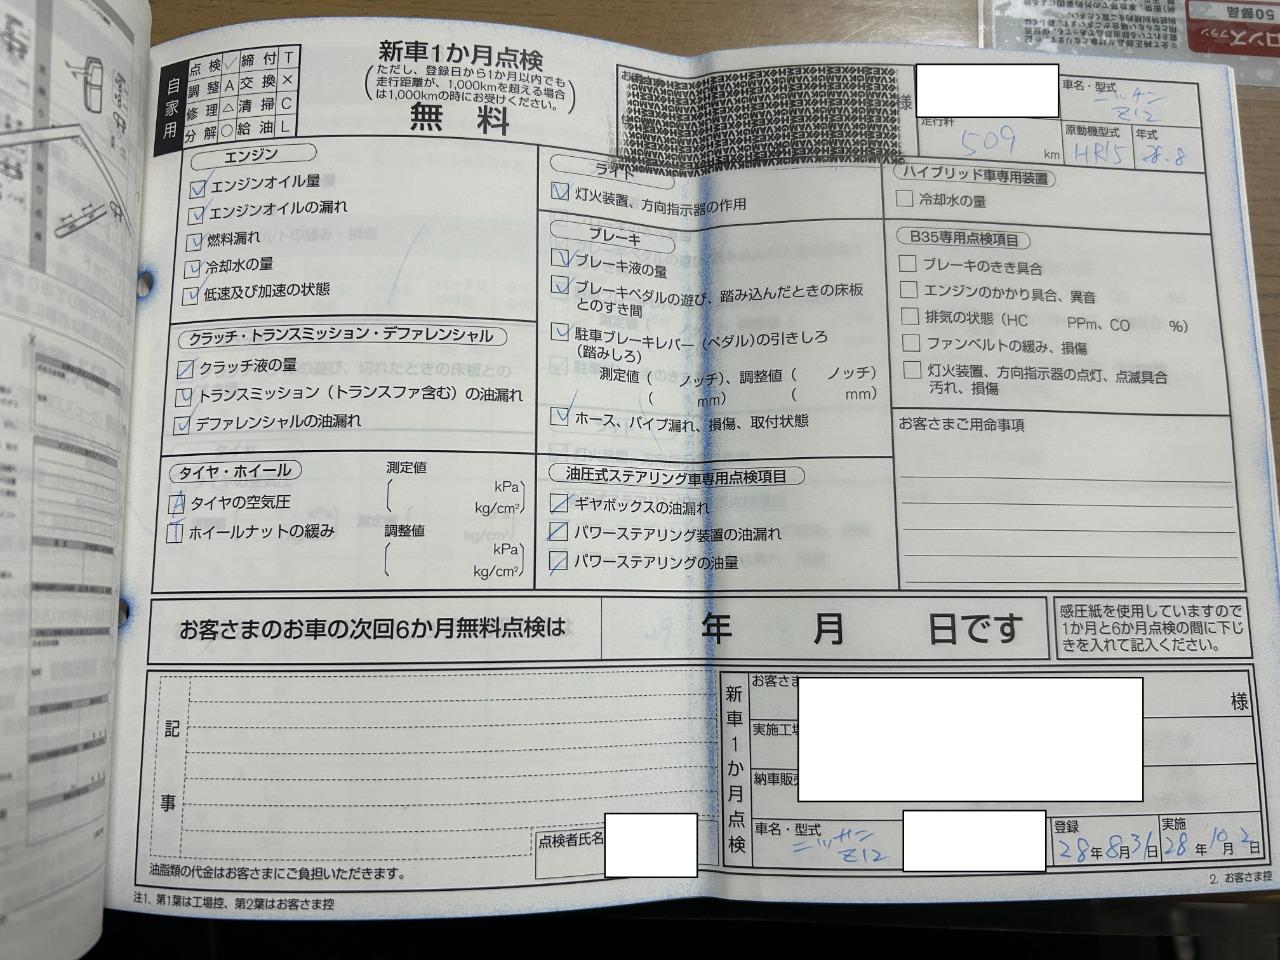 自家用
点検 ✓ 締付 T
調整 A 交換 ×
修理 △ 清掃 C
分解 ○ 給油 L
新車1か月点検
(ただし、登録日から1か月以内でも
走行距離が、1,000kmを超える場合
は1,000kmの時にお受けください。)
無料
様
車名・型式
ニッサン
Z12
走行杆
509 km
原動機型式
HR15
年式
28.8
エンジン
エンジンオイル量
エンジンオイルの漏れ
燃料漏れ
冷却水の量
低速及び加速の状態
クラッチ・トランスミッション・デファレンシャル
クラッチ液の量
トランスミッション(トランスファ含む)の油漏れ
デファレンシャルの油漏れ
タイヤ・ホイール
タイヤの空気圧
ホイールナットの緩み
測定値
kPa
kg/cm²
調整値
kPa
kg/cm²
ライト
灯火装置、方向指示器の作用
ブレーキ
ブレーキ液の量
ブレーキペダルの遊び、踏み込んだときの床板
とのすき間
駐車ブレーキレバー(ペダル)の引きしろ
(踏みしろ)
測定値( ノッチ)、調整値( ノッチ)
( mm) ( mm)
ホース、パイプ漏れ、損傷、取付状態
油圧式ステアリング車専用点検項目
ギヤボックスの油漏れ
パワーステアリング装置の油漏れ
パワーステアリングの油量
ハイブリッド車専用装置
冷却水の量
B35専用点検項目
ブレーキのきき具合
エンジンのかかり具合、異音
排気の状態(HC PPm、CO %)
ファンベルトの緩み、損傷
灯火装置、方向指示器の点灯、点滅具合
汚れ、損傷
お客さまご用命事項
お客さまのお車の次回6か月無料点検は
年 月 日です
感圧紙を使用していますので
1か月と6か月点検の間に下じ
きを入れて記入ください。
記事
点検者氏名
油脂類の代金はお客さまにご負担いただきます。
新車1か月点検
お客さま
様
実施工場
納車販売
車名・型式
ニッサン
Z12
登録
28年8月31日
実施
28年10月2日
注1. 第1葉は工場控、第2葉はお客さま控
2. お客さま控